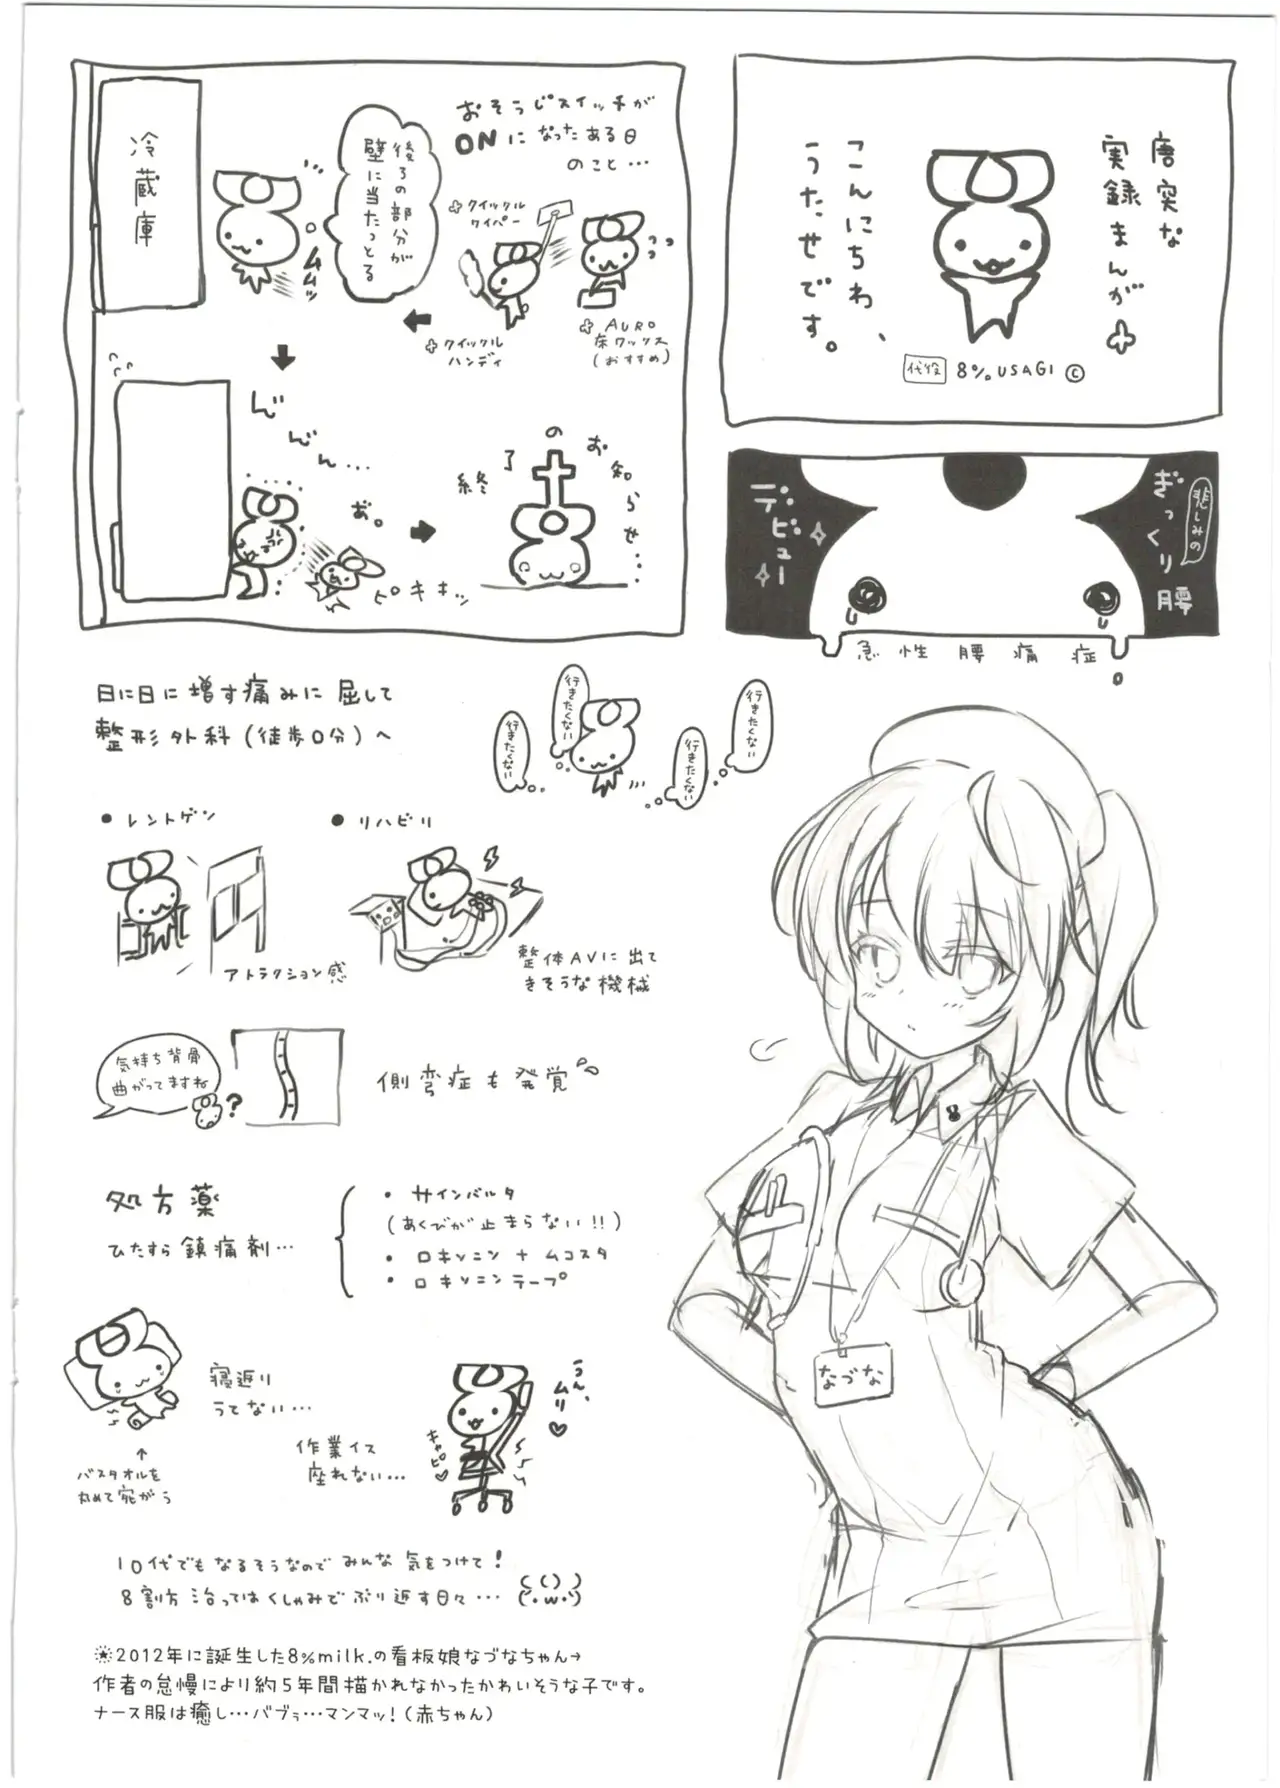 唐突な
実録まんが
こんにちわ、
うたせです。
代役
8% USAGI ©
悲しみの
ぎっくり腰
デビュー
急性腰痛症
おそうじスイッチが
ONになったある日
のこと…
クイックル
ワイパー
AURO
床ワックス
(おすすめ)
クイックル
ハンディ
後ろの部分が
壁に当たっとる
ムムッ
冷蔵庫
んんん…
あ。
ピキキッ
終了のお知らせ…
日に日に増す痛みに屈して
整形外科(徒歩0分)へ
行きたくない
行きたくない
行きたくない
行きたくない
● レントゲン
アトラクション感
● リハビリ
整体AVに出て
きそうな機械
気持ち背骨
曲がってますね
?
側弯症も発覚
処方薬
ひたすら鎮痛剤…
・サインバルタ
(あくびが止まらない!!)
・ロキソニン+ムコスタ
・ロキソニンテープ
寝返り
うてない…
↑
バスタオルを
丸めて宛がう
作業イス
座れない…
うん、
ムリ♡
キャピ♡
10代でもなるそうなのでみんな気をつけて!
8割方治ってはくしゃみでぶり返す日々…
('・w・')
※2012年に誕生した8%milk.の看板娘なづなちゃん→
作者の怠慢により約5年間描かれなかったかわいそうな子です。
ナース服は癒し…バブゥ…マンマッ!(赤ちゃん)
なづな